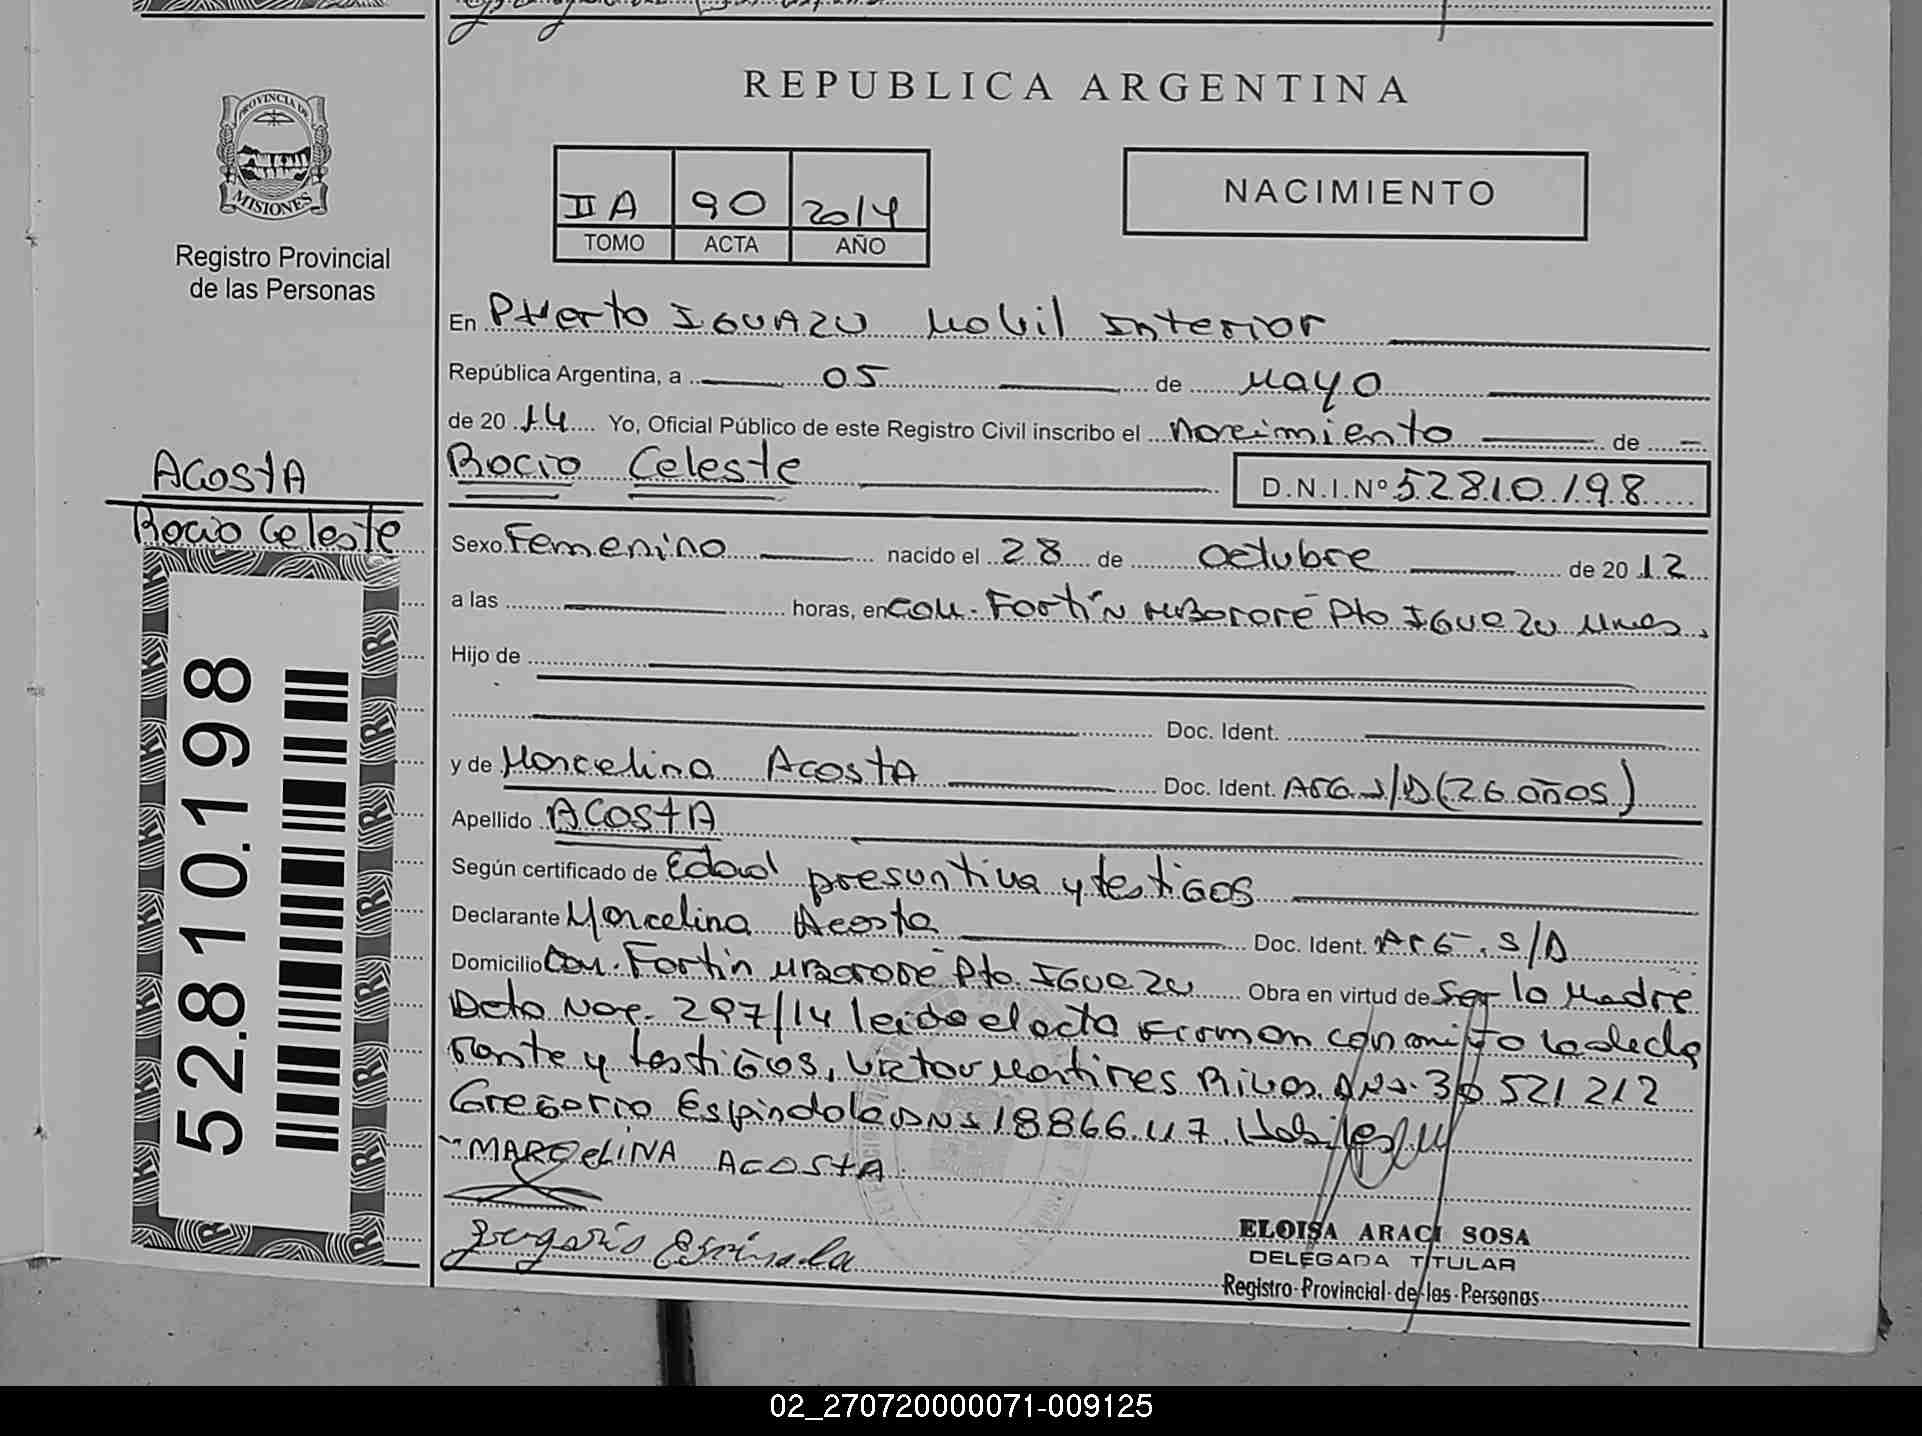 REPUBLICA ARGENTINA
PROVINCIA DE
MISIONES
Registro Provincial
de las Personas
II A 90 2014
TOMO ACTA AÑO
NACIMIENTO
En Puerto Iguazu Movil Interior
República Argentina, a 05 de Mayo
de 20 14 Yo, Oficial Público de este Registro Civil inscribo el nacimiento de
Rocio Celeste D.N.I.Nº 52810198
ACOSTA
Rocio Celeste
Sexo Femenino nacido el 28 de octubre de 20 12
a las horas, en Com. Fortín Mbororé Pto Iguazu Mnes.
Hijo de
Doc. Ident.
y de Marcelina Acosta Doc. Ident. Arg S/D (26 años)
Apellido ACOSTA
Según certificado de Edad presuntiva y testigos
Declarante Marcelina Acosta Doc. Ident. Arg. S/D
Domicilio Com. Fortín Mbororé Pto. Iguazu Obra en virtud de Ser la Madre
Dcto Nac. 297/14 leida el acta Firman conmigo la decla
rante y testigos, Victor Martines Rivas DNI. 30 521 212
Gregorio Espindola DNI 18866.117. Habiles
MARCELINA ACOSTA
52.810.198
ELOISA ARACI SOSA
DELEGADA TITULAR
Registro Provincial de las Personas
02_270720000071-009125